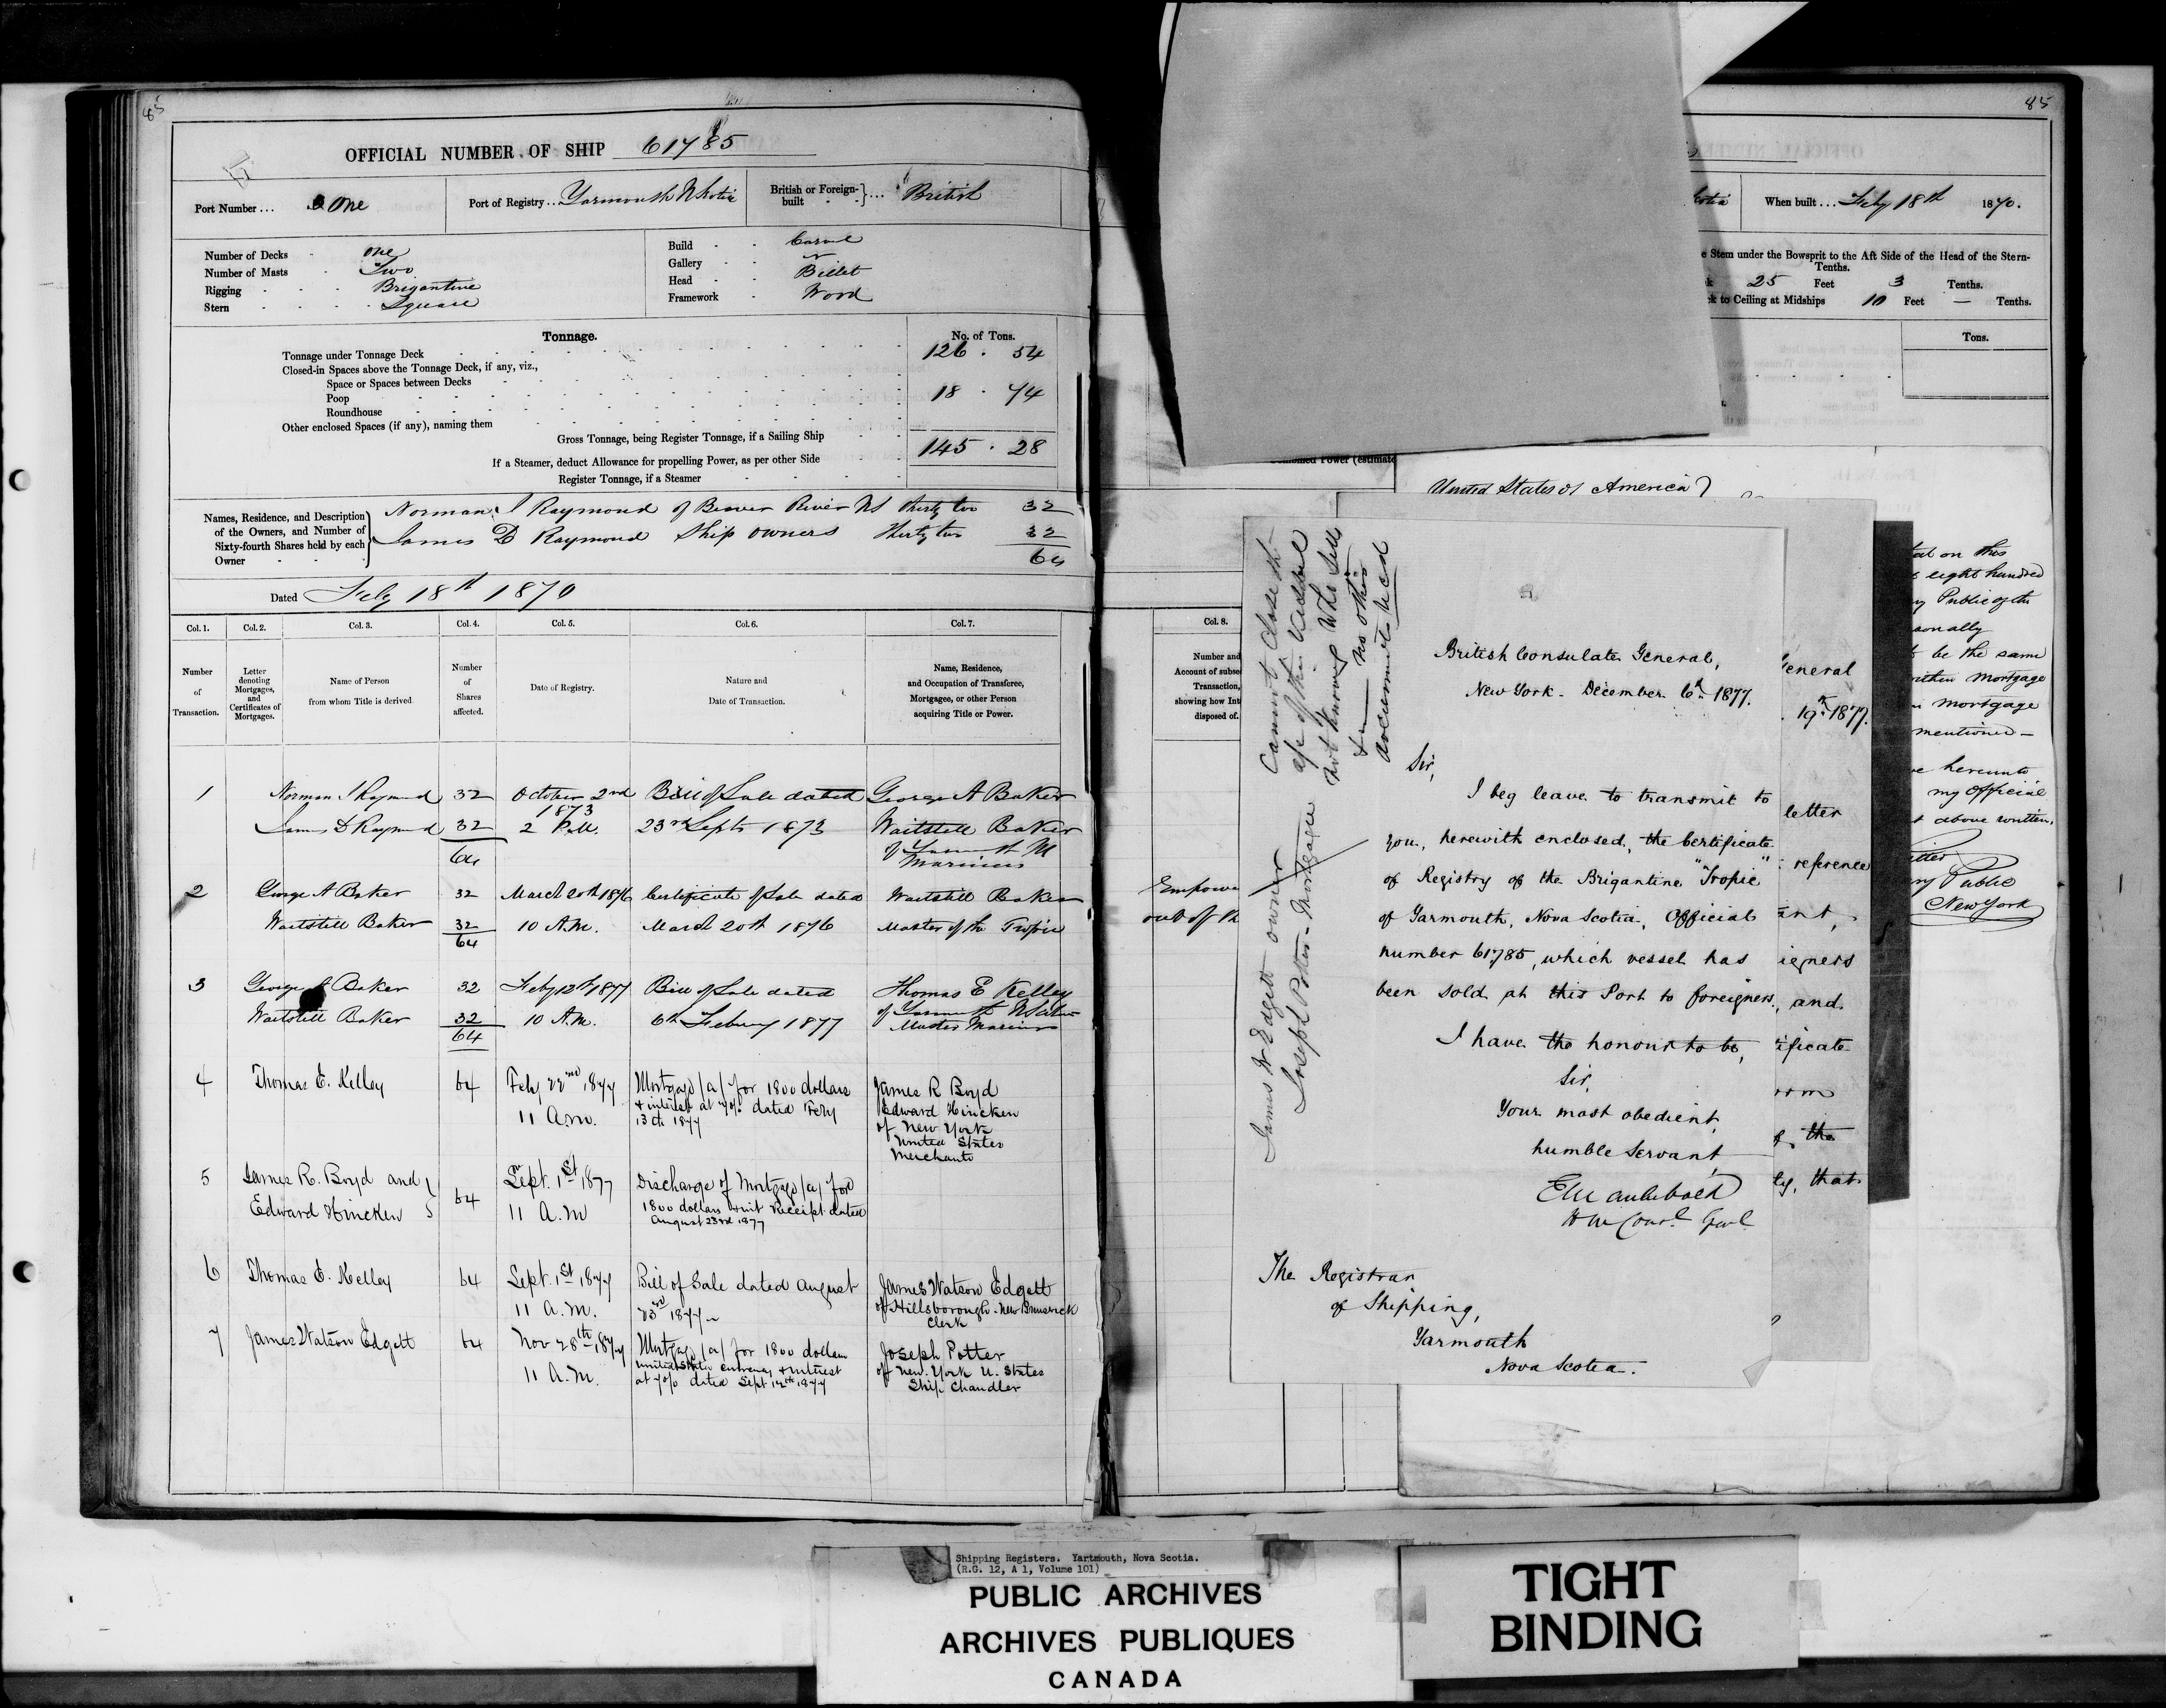 85
OFFICIAL NUMBER OF SHIP 61785
Port Number... One
Port of Registry... Yarmouth N Scotia
British or Foreign-built British
Number of Decks - One
Number of Masts - Two
Rigging - Brigantine
Stern - Square
Build - Carvel
Gallery -
Head - Billet
Framework - Wood
Tonnage.
No. of Tons.
Tonnage under Tonnage Deck 126 . 54
Closed-in Spaces above the Tonnage Deck, if any, viz.,
Space or Spaces between Decks
Poop 18 . 74
Roundhouse
Other enclosed Spaces (if any), naming them
Gross Tonnage, being Register Tonnage, if a Sailing Ship 145 . 28
If a Steamer, deduct Allowance for propelling Power, as per other Side
Register Tonnage, if a Steamer
Names, Residence, and Description of the Owners, and Number of Sixty-fourth Shares held by each Owner
Norman J Raymond of Beaver River NS Thirty two 32
James D Raymond Ship owners Thirty two 32
64
Dated Feby 18th 1870
Col. 1. Col. 2. Col. 3. Col. 4. Col. 5. Col. 6. Col. 7.
Number of Transaction.
Letter denoting Mortgages, and Certificates of Mortgages.
Name of Person from whom Title is derived
Number of Shares affected.
Date of Registry.
Nature and Date of Transaction.
Name, Residence, and Occupation of Transferee, Mortgagee, or other Person acquiring Title or Power.
1 Norman J Raymond 32 October 2nd 1873 Bill of Sale dated George A Baker
James D Raymond 32 2 P.M. 23rd Sept 1873 Waitstill Baker
64 of Yarmouth
Mariners
2 George A Baker 32 March 20th 1876 Certificate of Sale dated Waitstill Baker
Waitstill Baker 32 10 A.M. March 20th 1876 Master of the Tropic
64
3 George A Baker 32 Feby 12th 1877 Bill of Sale dated Thomas E Kelley
Waitstill Baker 32 10 A.M. 6th Febuary 1877 of Yarmouth N Scotia
64 Master Mariner
4 Thomas E. Kelley 64 Feby 22nd 1877 Mortgage (a) for 1800 dollars James R Boyd
11 A.m. & interest at 7% dated Feby Edward Hincken
13th 1877 of New York
United States
Merchants
5 James R. Boyd and 64 Sept. 1st 1877 Discharge of Mortgage (a) for
Edward Hincken 11 A.M 1800 dollars & int Receipt dated
August 23rd 1877
6 Thomas E. Kelley 64 Sept. 1st 1877 Bill of Sale dated August James Watson Edgett
11 a.m. 23rd 1877 of Hillsborough. New Brunswick
Clerk
7 James Watson Edgett 64 Nov 28th 1877 Mortgage (a) for 1800 dollars Joseph Potter
11 A.M. United States currency & interest of New York U. States
at 7% dated Sept 12th 1877 Ship Chandler
85
cotia
When built... Feby 18th 1870.
e Stem under the Bowsprit to the Aft Side of the Head of the Stern-
Tenths.
25 Feet 3 Tenths.
k to Ceiling at Midships 10 Feet — Tenths.
Tons.
Power (estimate
United States of America
Col. 8.
Number and
Account of subse
Transaction,
showing how Int
disposed of.
Empowe
out of
Cannot close th
not knowing who sells
no other
documents recd
James W Edgett owner
Joseph Potter Mortgagee
British Consulate General,
New York. December 6th 1877.
Sir,
I beg leave to transmit to
you, herewith enclosed, the Certificate
of Registry of the Brigantine "Tropic"
of Yarmouth, Nova Scotia, Official
number 61785, which vessel has
been sold at this Port to foreigners.
I have the honour to be,
Sir,
Your most obedient,
humble Servant,
E M Archibald
H M Consl Genl
The Registrar
of Shipping,
Yarmouth
Nova Scotia.
eneral
19th 1877.
letter
reference
ant,
igners
and
ificate
the
ly, that
on this
eight hundred
y Public of the
sonally
be the same
within mortgage
mortgage
mentioned —
e hereunto
my Official
above written.
ry Public
New York
Shipping Registers. Yartmouth, Nova Scotia.
(R.G. 12, A 1, Volume 101)
PUBLIC ARCHIVES
ARCHIVES PUBLIQUES
CANADA
TIGHT
BINDING